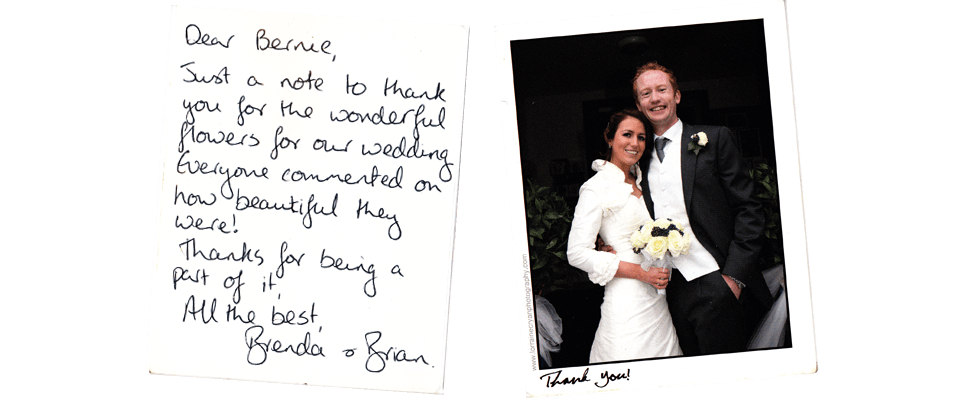 Dear Bernie,
Just a note to thank
you for the wonderful
flowers for our wedding
Everyone commented on
how beautiful they
were!
Thanks for being a
part of it,
All the best,
Brenda & Brian.
Thank you!